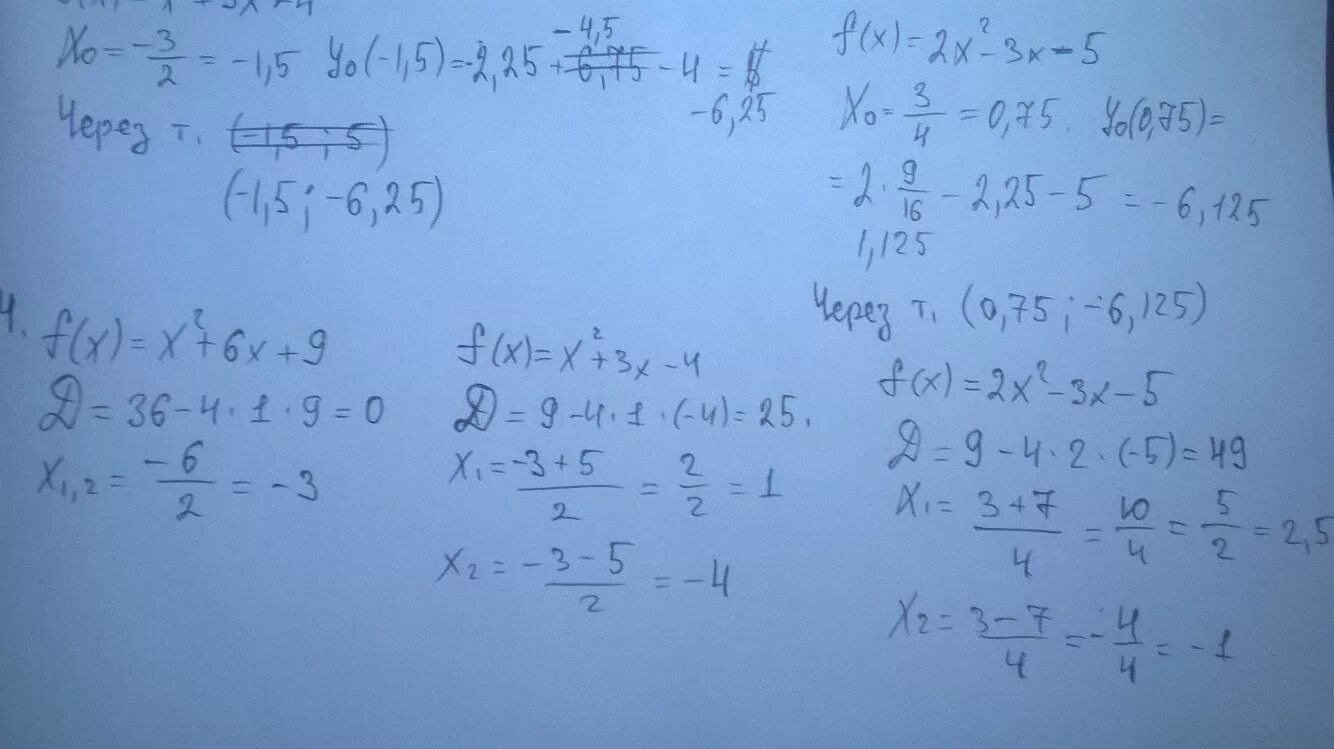 f(x) = x² + 3x - 4
X₀ = -3/2 = -1,5 y₀(-1,5) = 2,25 -4,5 - 4 = -6,25
Через т. (-1,5 ; 5)
(-1,5 ; -6,25)
f(x) = 2x² - 3x - 5
X₀ = 3/4 = 0,75. y₀(0,75) =
= 2 · 9/16 - 2,25 - 5 = -6,125
1,125
Через т. (0,75 ; -6,125)
4.
f(x) = x² + 6x + 9
D = 36 - 4 · 1 · 9 = 0
X₁,₂ = -6/2 = -3
f(x) = x² + 3x - 4
D = 9 - 4 · 1 · (-4) = 25.
X₁ = (-3+5)/2 = 2/2 = 1
X₂ = (-3-5)/2 = -4
f(x) = 2x² - 3x - 5
D = 9 - 4 · 2 · (-5) = 49
X₁ = (3+7)/4 = 10/4 = 5/2 = 2,5
X₂ = (3-7)/4 = -4/4 = -1